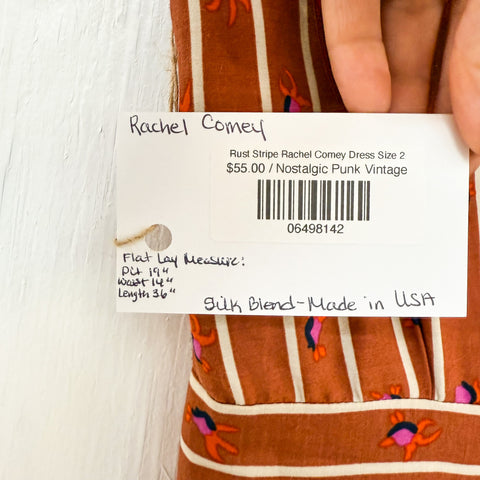 Rachel Comey
Rust Stripe Rachel Comey Dress Size 2
$55.00 / Nostalgic Punk Vintage
06498142
Flat Lay Measure:
Pit 19"
Waist 14"
Length 36"
Silk Blend-Made in USA